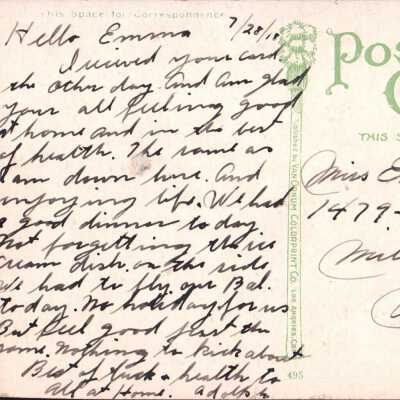 This Space for Correspondence
Hello Emma 7/28/18
I recived your card
the other day and am glad
your all feeling good
at home and in the best
of health. The same as
I am down here. And
enjoying life. We had
a good dinner to day
not forgetting the ice
cream dish on the side
We had to fly our Bal.
today. No holiday for us
But feel good just the
same. Nothing to kick about
Best of luck & health to
All at Home. Adolph
PUBLISHED BY VAN ORNUM COLORPRINT CO., LOS ANGELES, CAL.
495
Pos
C
THIS S
Miss E
1479-
Mil